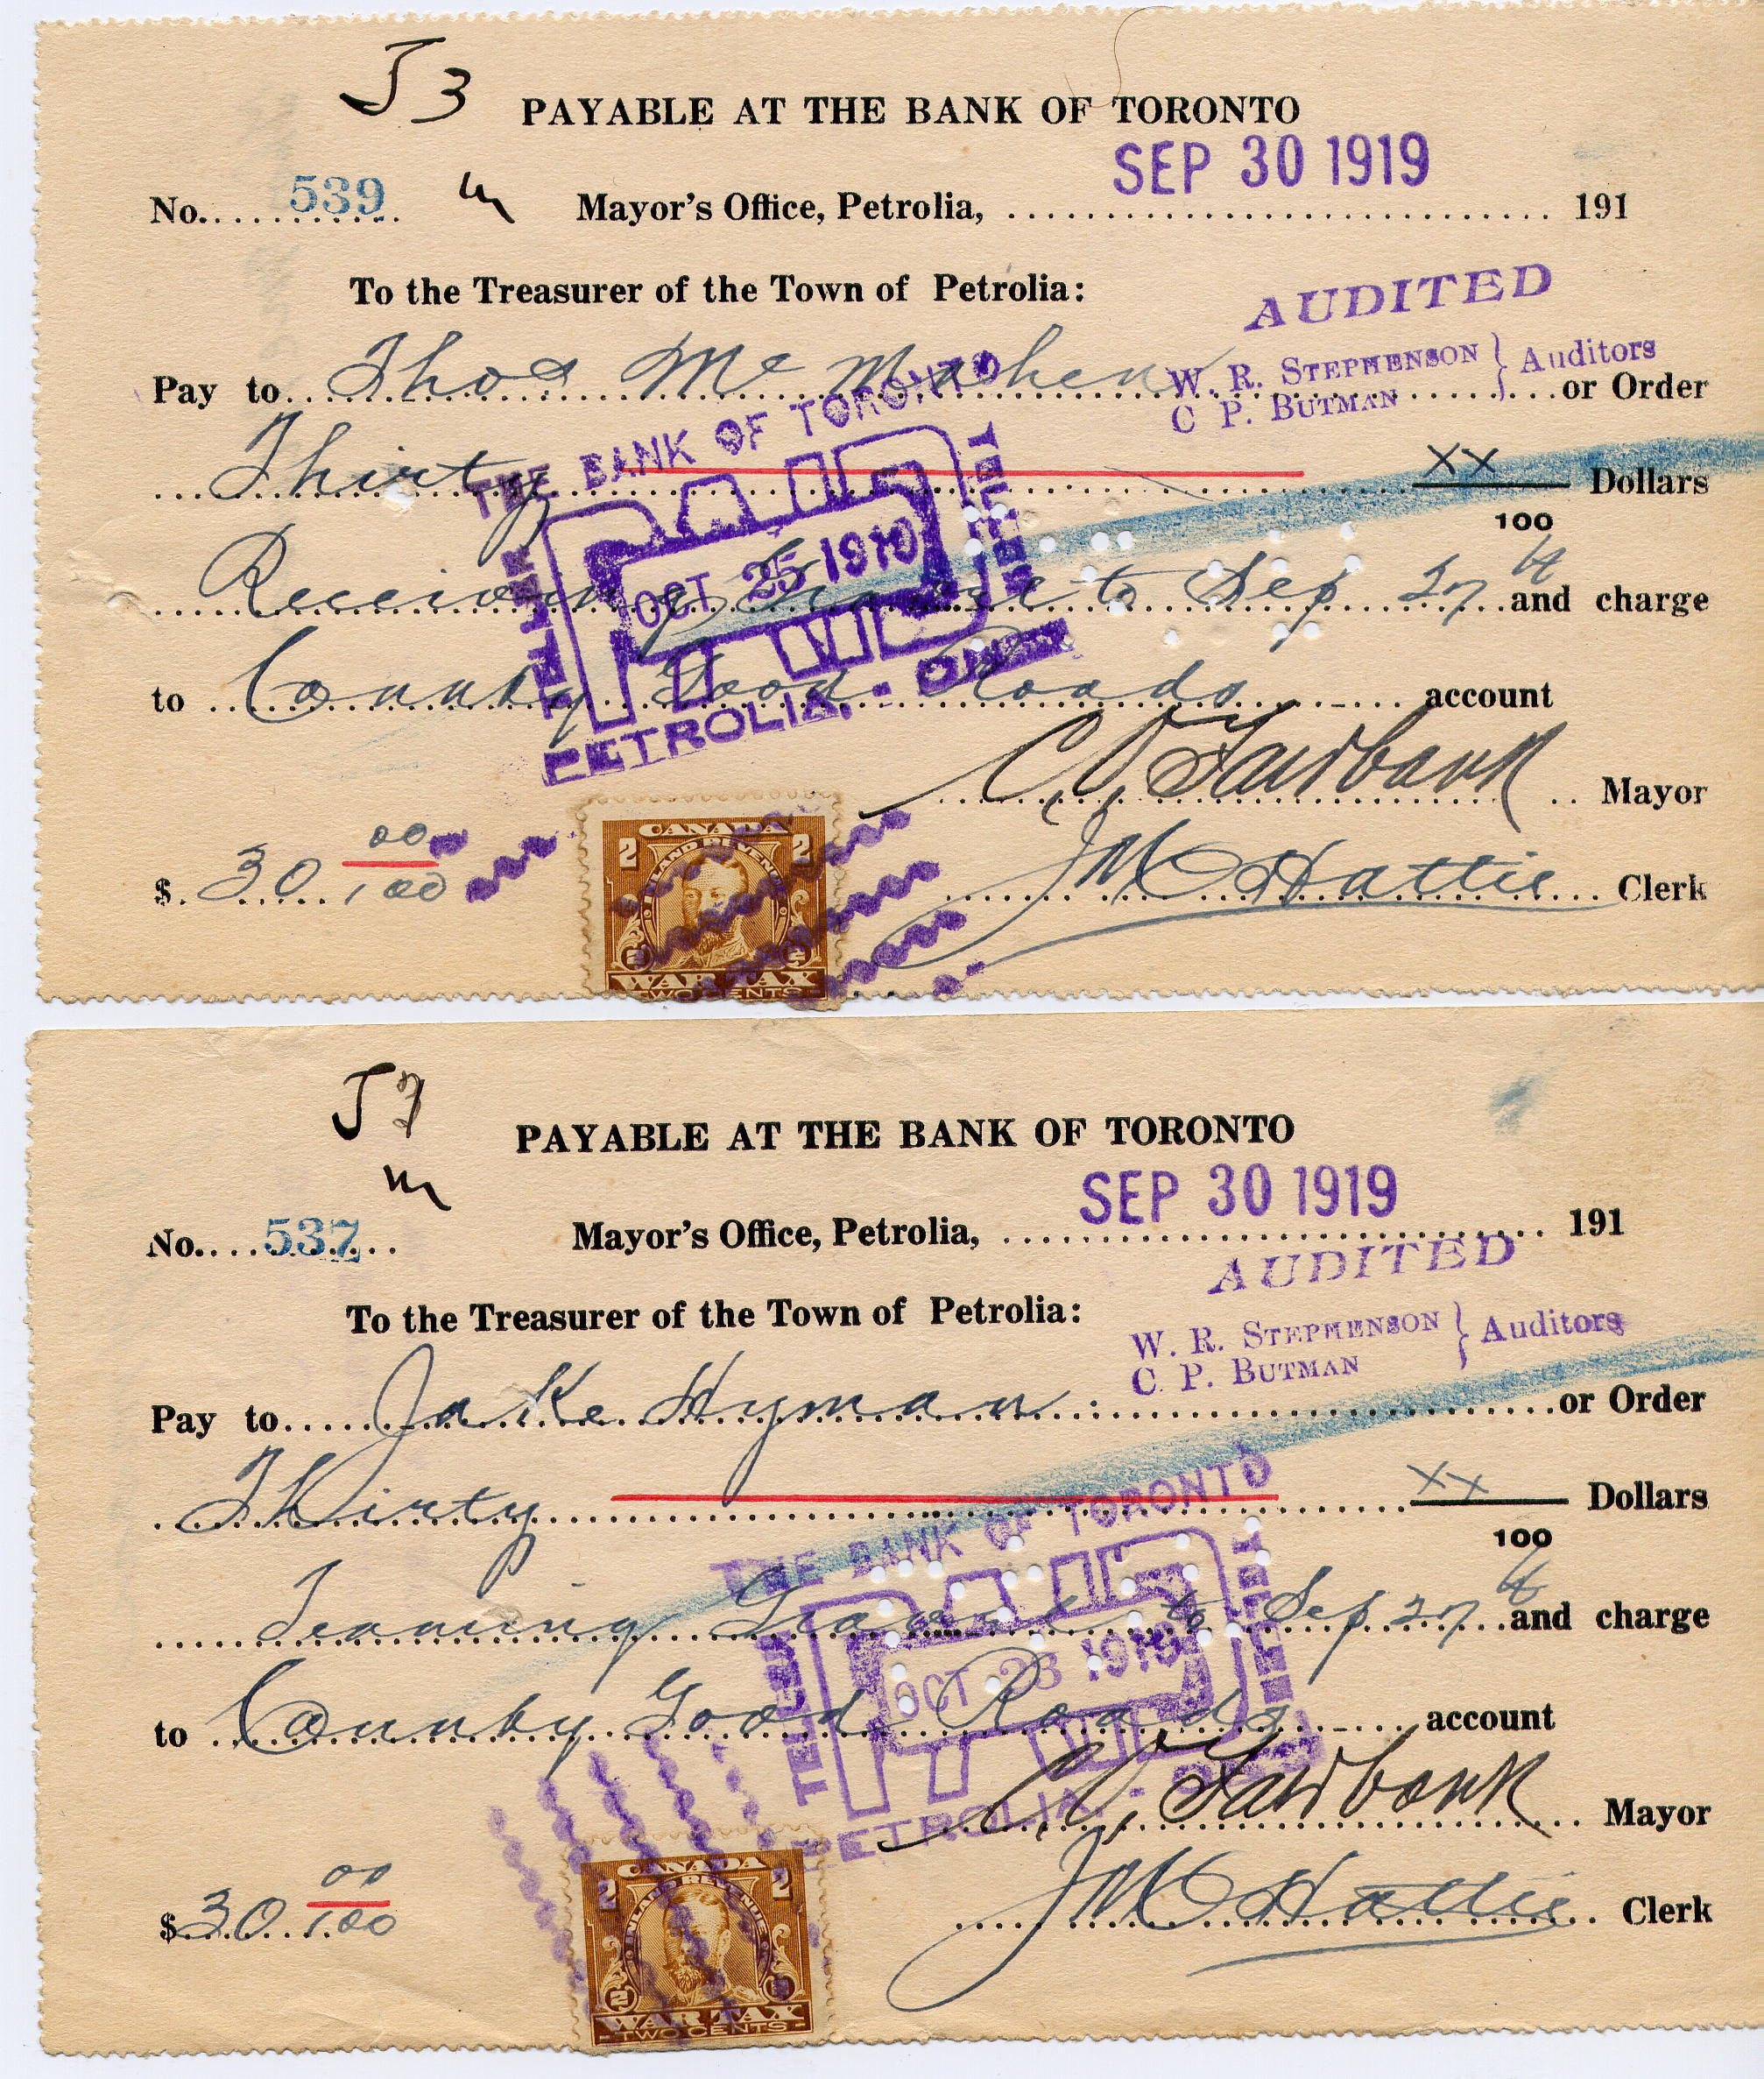 J 3
PAYABLE AT THE BANK OF TORONTO
SEP 30 1919
No. 539 Mayor's Office, Petrolia, 191
To the Treasurer of the Town of Petrolia:
AUDITED
W. R. STEPHENSON } Auditors
C P. BUTMAN
Pay to Thos Mc Mahen or Order
Thirty xx/100 Dollars
THE BANK OF TORONTO
PAID
OCT 25 1919
TELLER
PETROLIA, - ONT.
Receiving Gravel to Sep 27th and charge
to County Good Roads account
Mayor
$ 30 00/100
J Mc Hattie Clerk
CANADA
2 INLAND REVENUE 2
2 2
WAR TAX
TWO CENTS
J 7
PAYABLE AT THE BANK OF TORONTO
SEP 30 1919
No. 537 Mayor's Office, Petrolia, 191
AUDITED
To the Treasurer of the Town of Petrolia:
W. R. STEPHENSON } Auditors
C. P. BUTMAN
Pay to Jake Hyman or Order
Thirty xx/100 Dollars
THE BANK OF TORONTO
PAID
OCT 23 1919
TELLER
PETROLIA, -
Teaming Gravel to Sep 27th and charge
to County Good Roads account
Mayor
$ 30 00/100
J Mc Hattie Clerk
CANADA
2 INLAND REVENUE 2
2 2
WAR TAX
-TWO CENTS-